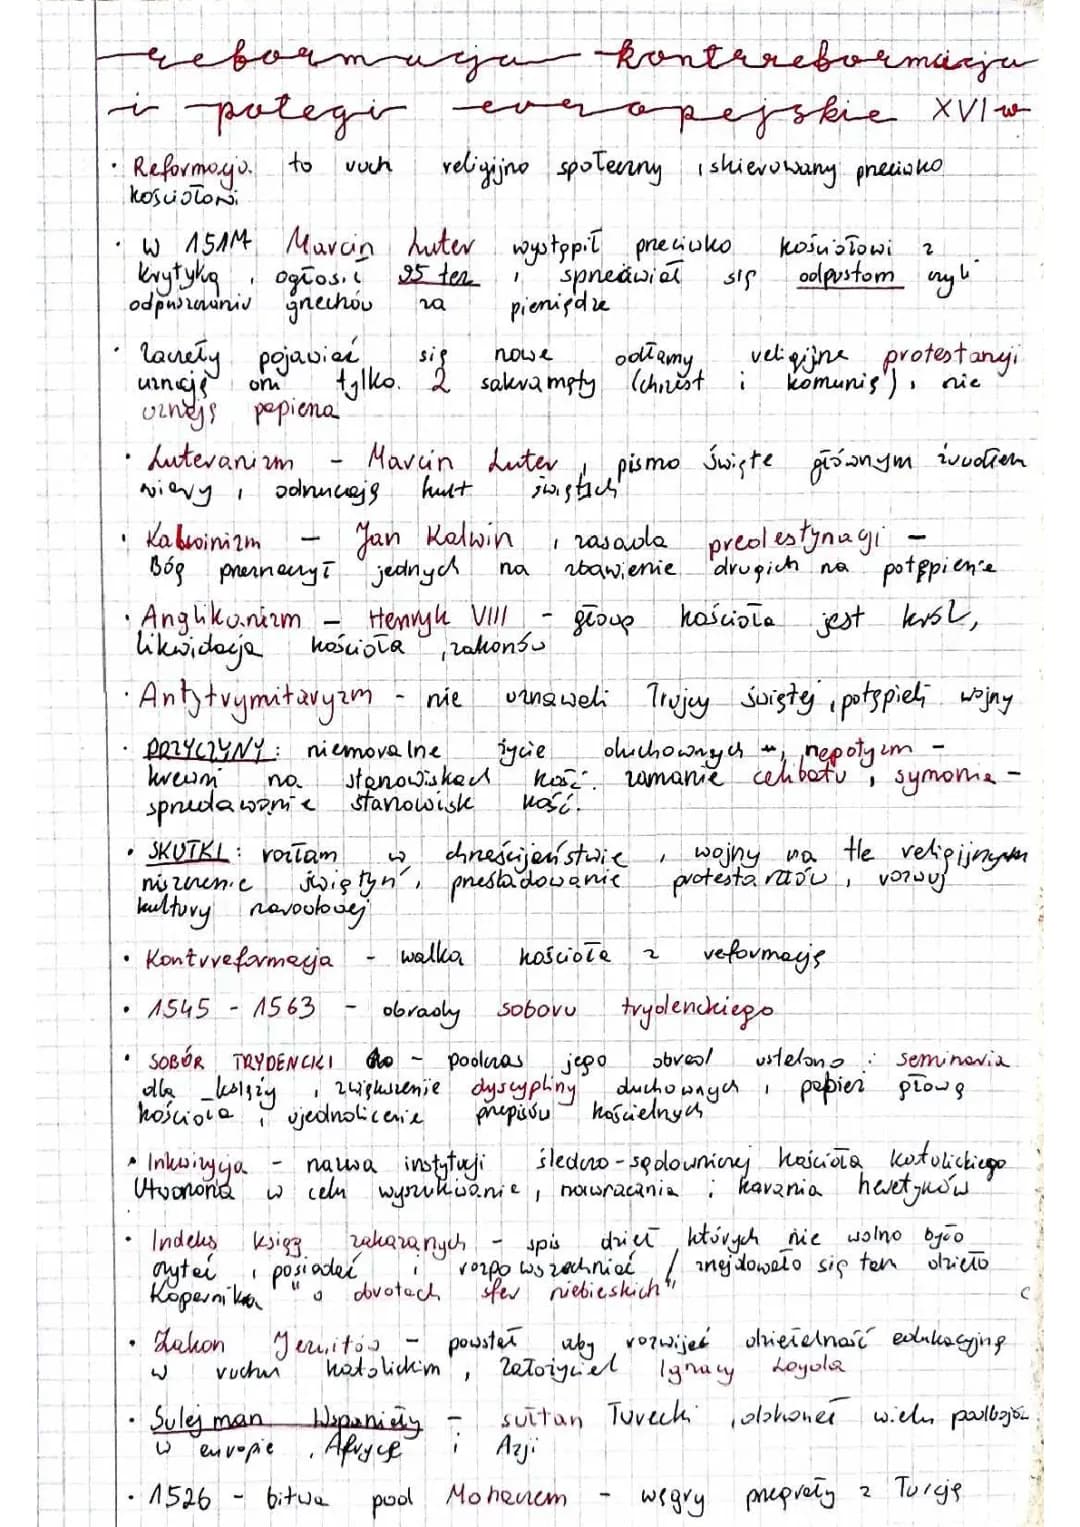 reformacja kontrreformacja
i potęgi europejskie XVI w
· Reformacja to ruch religijno społeczny, skierowany przeciwko
kościołowi
· w 1517 Marcin Luter wystąpił przeciwko kościołowi z
krytyką, ogłosił 95 tez, sprzeciwiał się odpustom czyli
odpuszczaniu grzechów za pieniądze
· Zaczęły pojawiać się nowe odłamy religijne protestanci
uznają oni tylko 2 sakramęty (chrzest i komunię), nie
uznają papieża
· Luteranizm - Marcin Luter, pismo święte głównym źródłem
wiary, odrzucają kult świętych
· Kalwinizm - Jan Kalwin, zasada predestynacji -
Bóg przeznaczył jednych na zbawienie drugich na potępienie
· Anglikanizm - Henryk VIII - głową kościoła jest król,
likwidacja kościoła, zakonów
· Antytrymitaryzm - nie uznaweli Trójcy świętej, potępieli wojny
· PRZYCZYNY: niemoralne życie duchownych, nepotyzm -
krewni na stanowiskach kość. łamanie celibatu, symonia -
sprzedawanie stanowisk kość.
· SKUTKI: rozłam w chrześcijaństwie, wojny na tle religijnym
niszczenie świętyń, prześladowanie protestantów, rozwój
kultury narodowej
· Kontrreformacja - walka kościoła z reformacją
· 1545 - 1563 - obrady soboru trydenckiego
· SOBÓR TRYDENCKI - podczas jego obrad ustalono: seminaria
dla księży, zwiększenie dyscypliny duchownych, papież głową
kościoła, ujednolicenie przepisów kościelnych
· Inkwizycja - nazwa instytucji śledczo-sądowniczej kościoła katolickiego
Utworzona w celu wyszukiwanie, nawracania i karania heretyków
· Indeks ksiąg zakazanych - spis dzieł których nie wolno było
czytać, posiadać i rozpowszechniać / znajdowało się tam dzieło
Kopernika "o obrotach sfer niebieskich"
· Zakon Jezuitów - powstał aby rozwijać działalność edukacyjną
w ruchu katolickim, założyciel Ignacy Loyola
· Sulejman Wspaniały - sułtan Turecki, dokonał wielu podbojów
w europie, Afryce i Azji
· 1526 - bitwa pod Mohaczem - węgry przegrały z Turcją